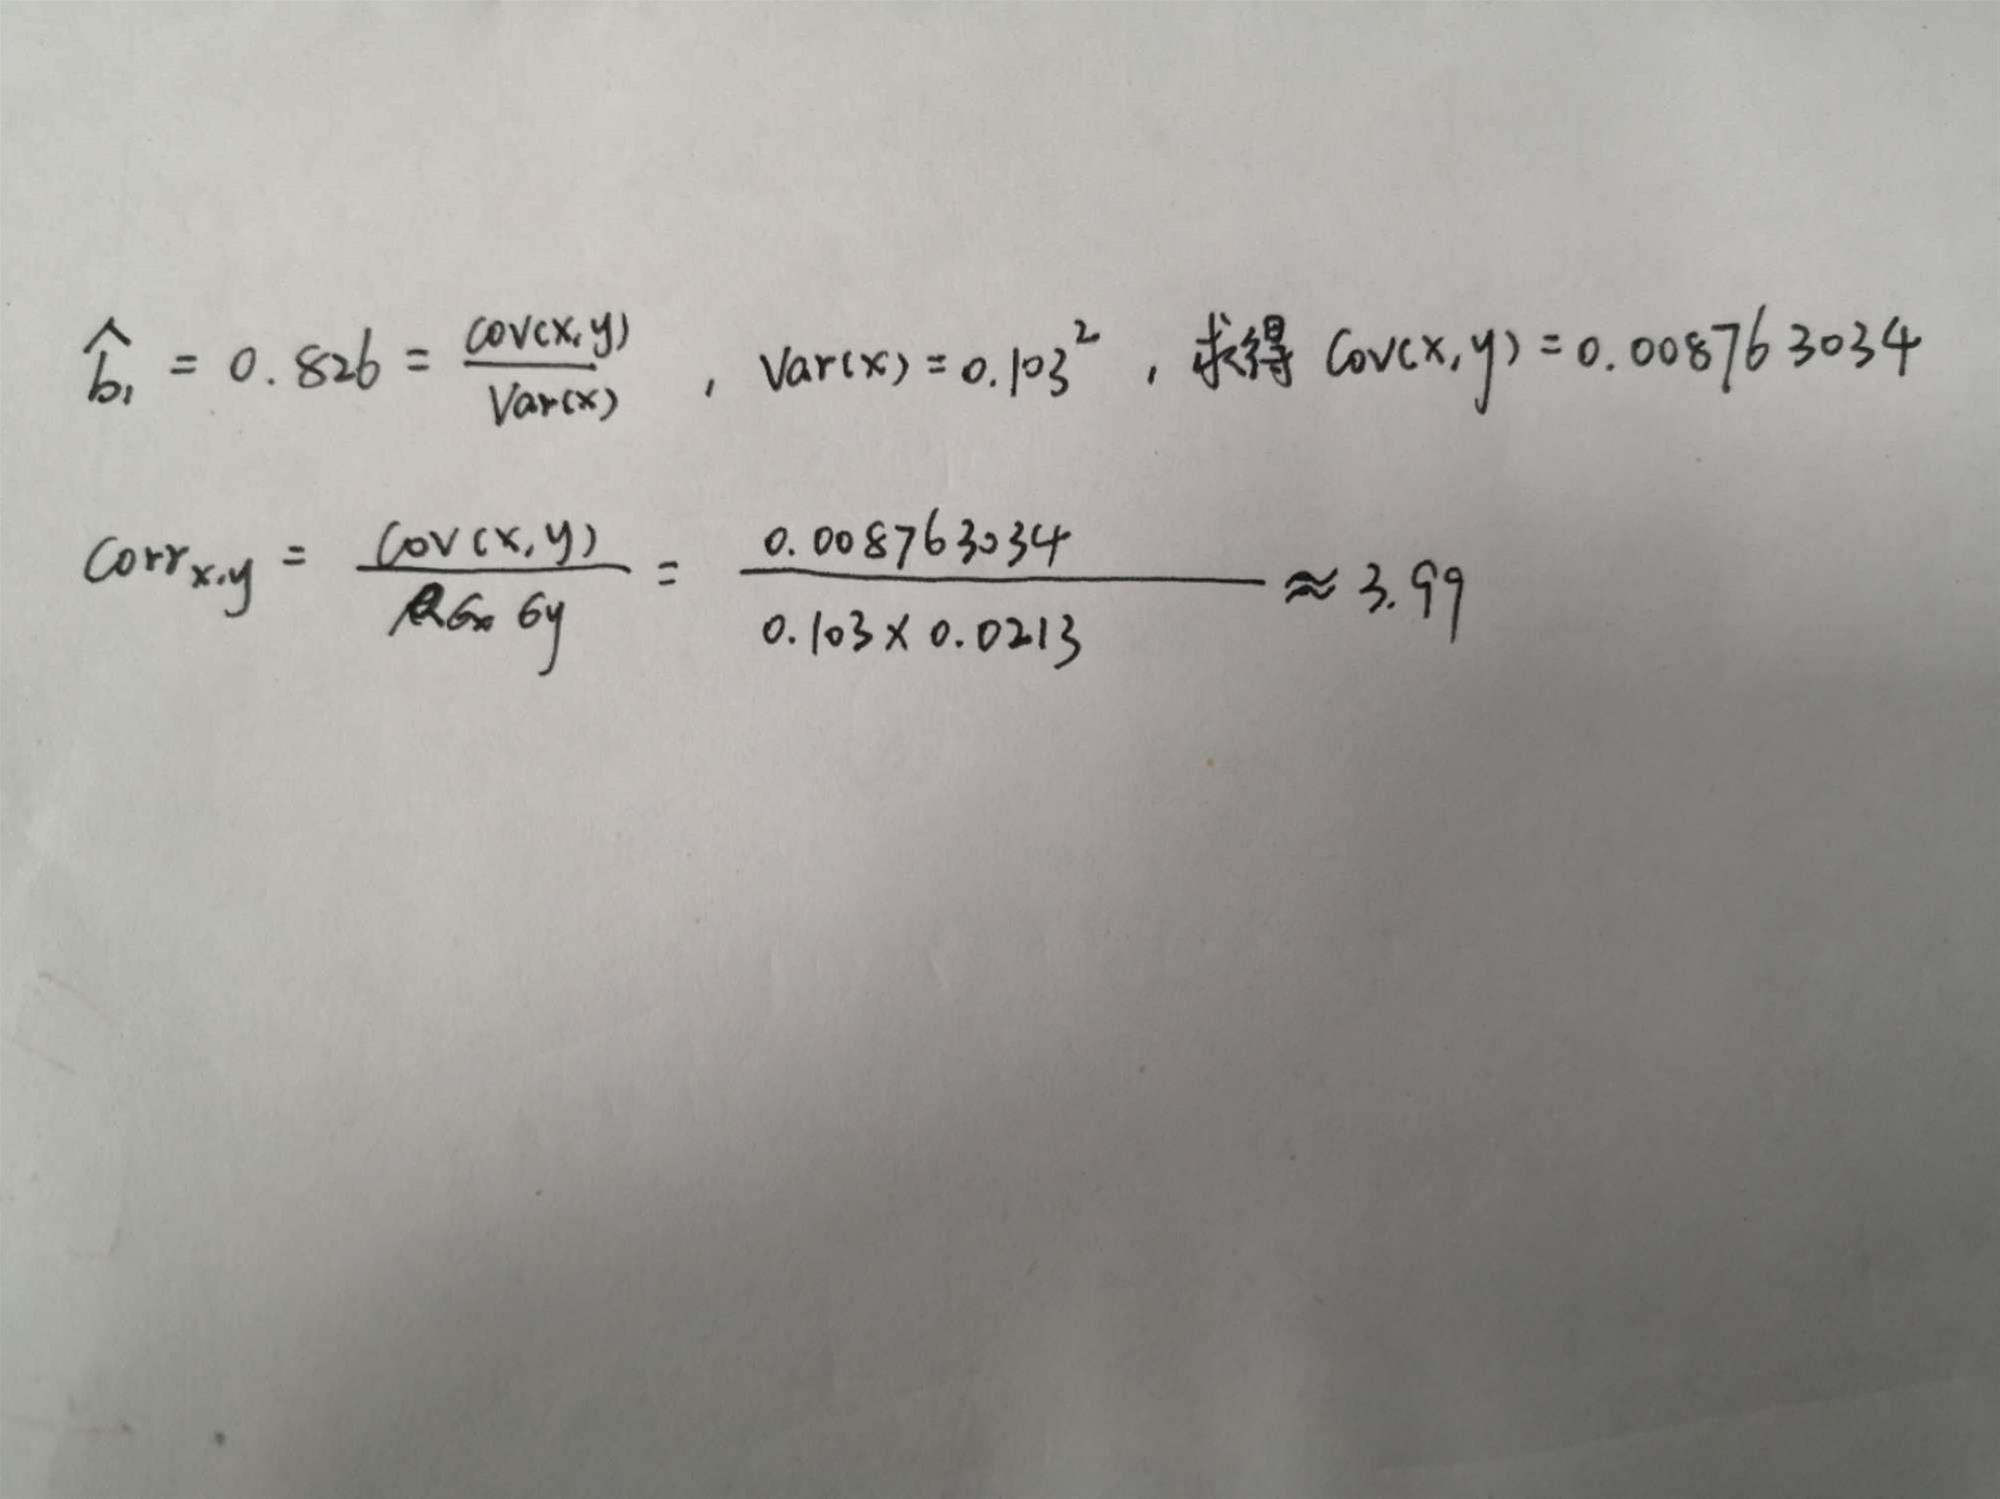 b̂₁ = 0.826 = cov(x,y)/Var(x) , Var(x) = 0.103² , 求得 Cov(x,y) = 0.008763034
Corr x,y = Cov(x,y)/σx σy = 0.008763034/0.103×0.0213 ≈ 3.99